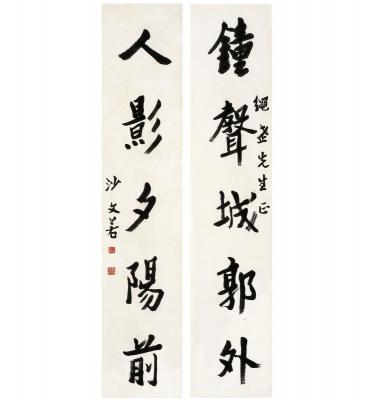 鐘聲城郭外
繩盦先生正
人影夕陽前
沙文若